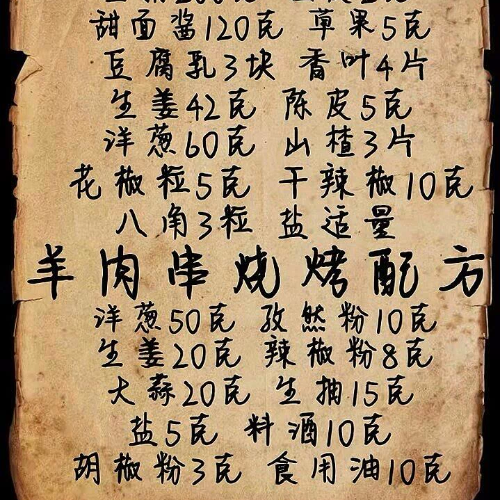 甜面酱120克 草果5克
豆腐乳3块 香叶4片
生姜42克 陈皮5克
洋葱60克 山楂3片
花椒粒5克 干辣椒10克
八角3粒 盐适量
羊肉串烧烤配方
洋葱50克 孜然粉10克
生姜20克 辣椒粉8克
大蒜20克 生抽15克
盐5克 料酒10克
胡椒粉3克 食用油10克